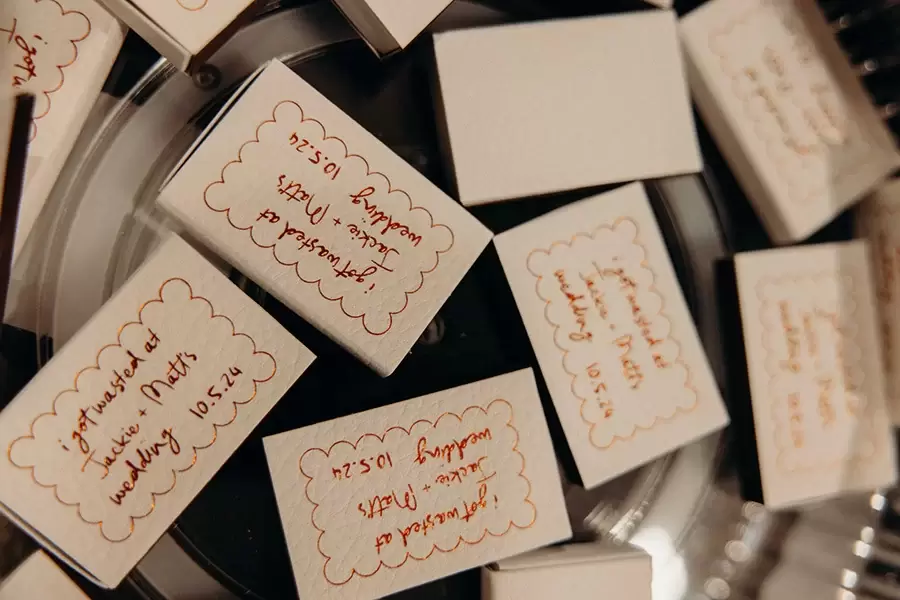 i got wasted at
Jackie + Matt's
wedding 10.5.24
i got wasted at
Jackie + Matt's
wedding 10.5.24
i got wasted at
Jackie + Matt's
wedding 10.5.24
i got wasted at
Jackie + Matt's
wedding 10.5.24
i got